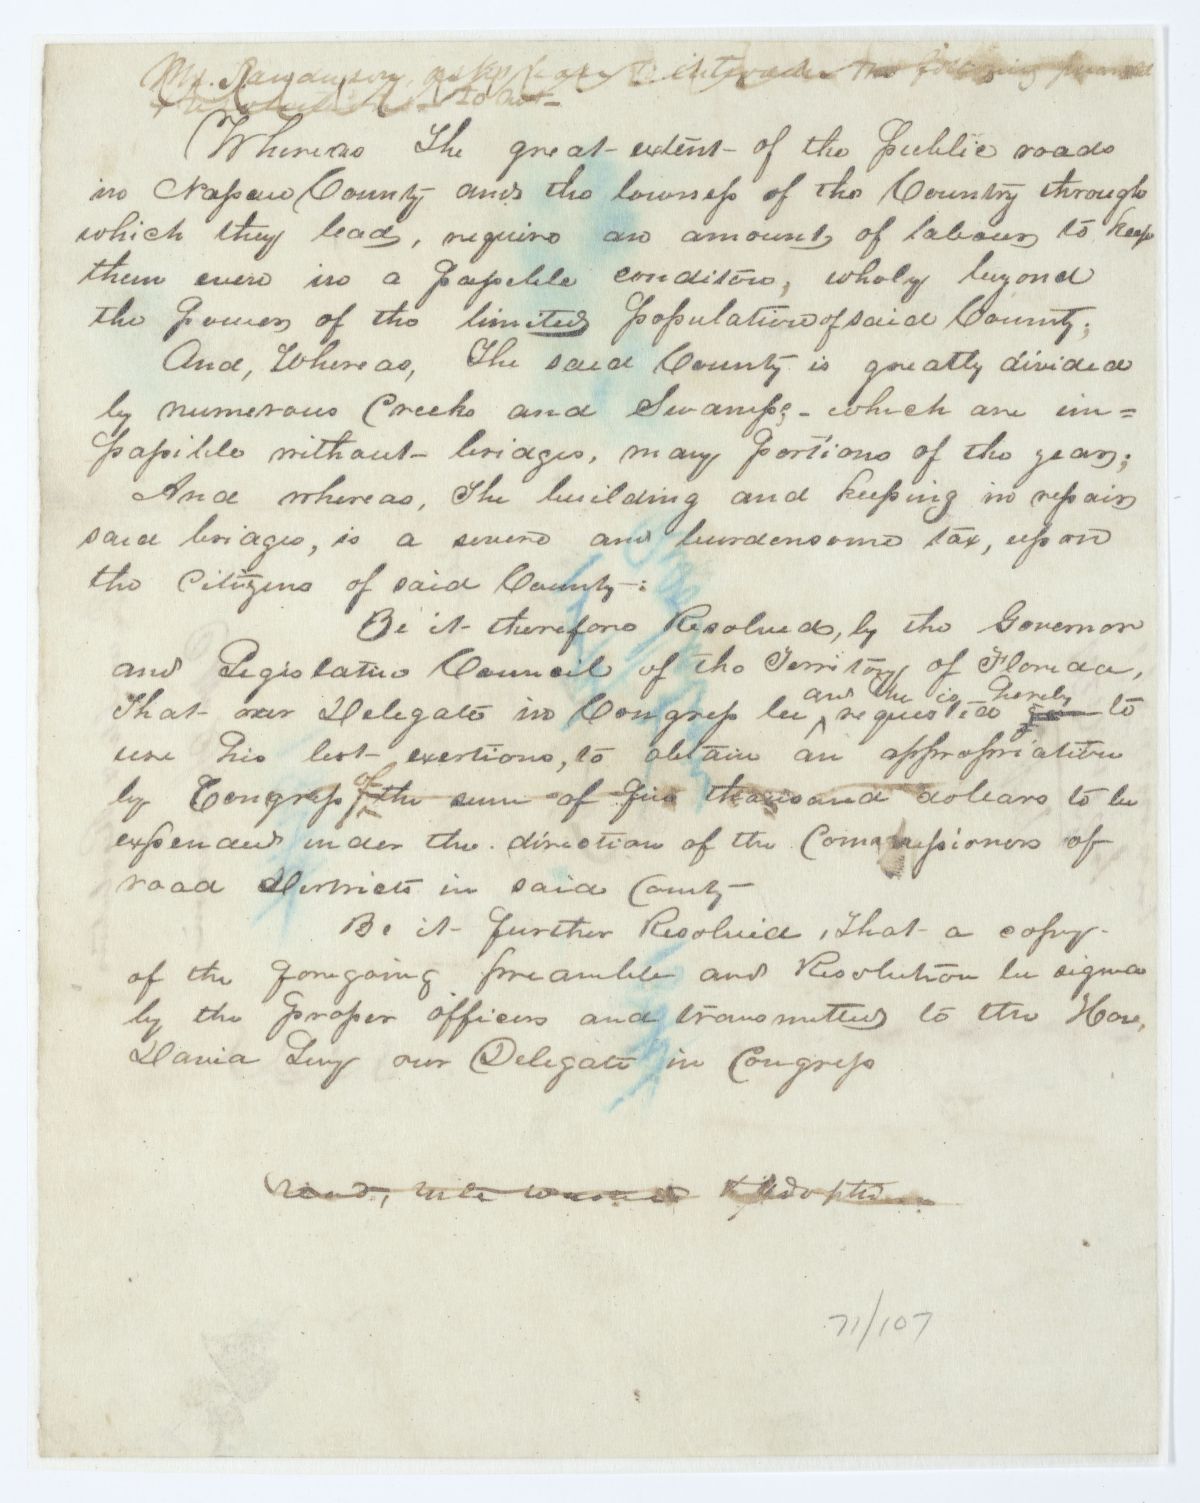 Mr. asks leave to introduce the following preamble
& resolution to wit—
Whereas The great extent of the Public roads
in Nassau County and the lowness of the Country through
which they lead, require an amount of labour to keep
them even in a passable condition, wholy beyond
the Power of the limited Population of said County;
And, Whereas, The said County is greatly divided
by numerous Creeks and Swamps,- which are im=
passible without bridges, many Portions of the year;
And whereas, The building and keeping in repair
said bridges, is a severe and burdensome tax, upon
the Citizens of said County:
Be it therefore Resolved, by the Governor
and Legislative Council of the Territory of Florida,
and he is hereby
That our Delegate in Congress be ^ requested to
use his best exertions, to obtain an appropriation
of
by Congress the sum of five thousand dollars to be
expended under the direction of the Commissioners of
road Districts in said County
Be it further Resolved, That a copy
of the foregoing preamble and Resolution be signed
by the Proper officers and transmitted to the Hon,
David Levy our Delegate in Congress
Read, rule waived & Adopted
71/107